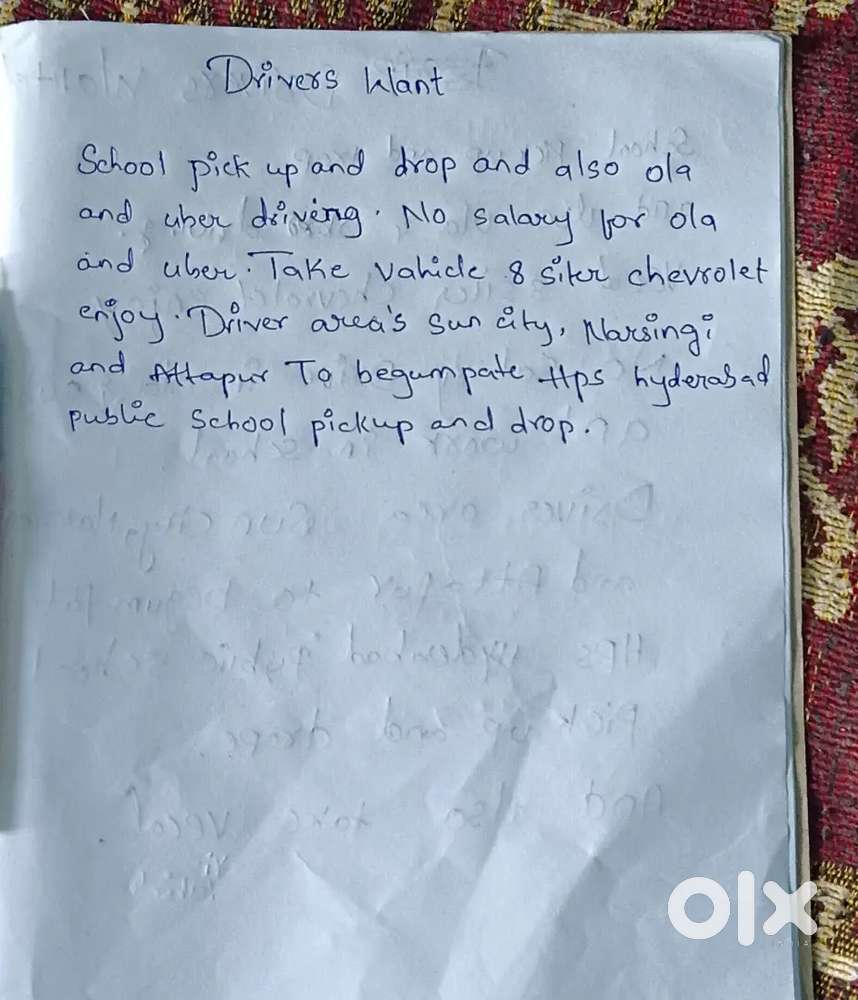 Drivers Want
School pick up and drop and also ola
and uber driving. No salary for ola
and uber. Take vahicle 8 siter chevrolet
enjoy. Driver area's sun city, Narsingi
and Attapur To begumpate Hps hyderabad
public School pickup and drop.
olx
INDIA